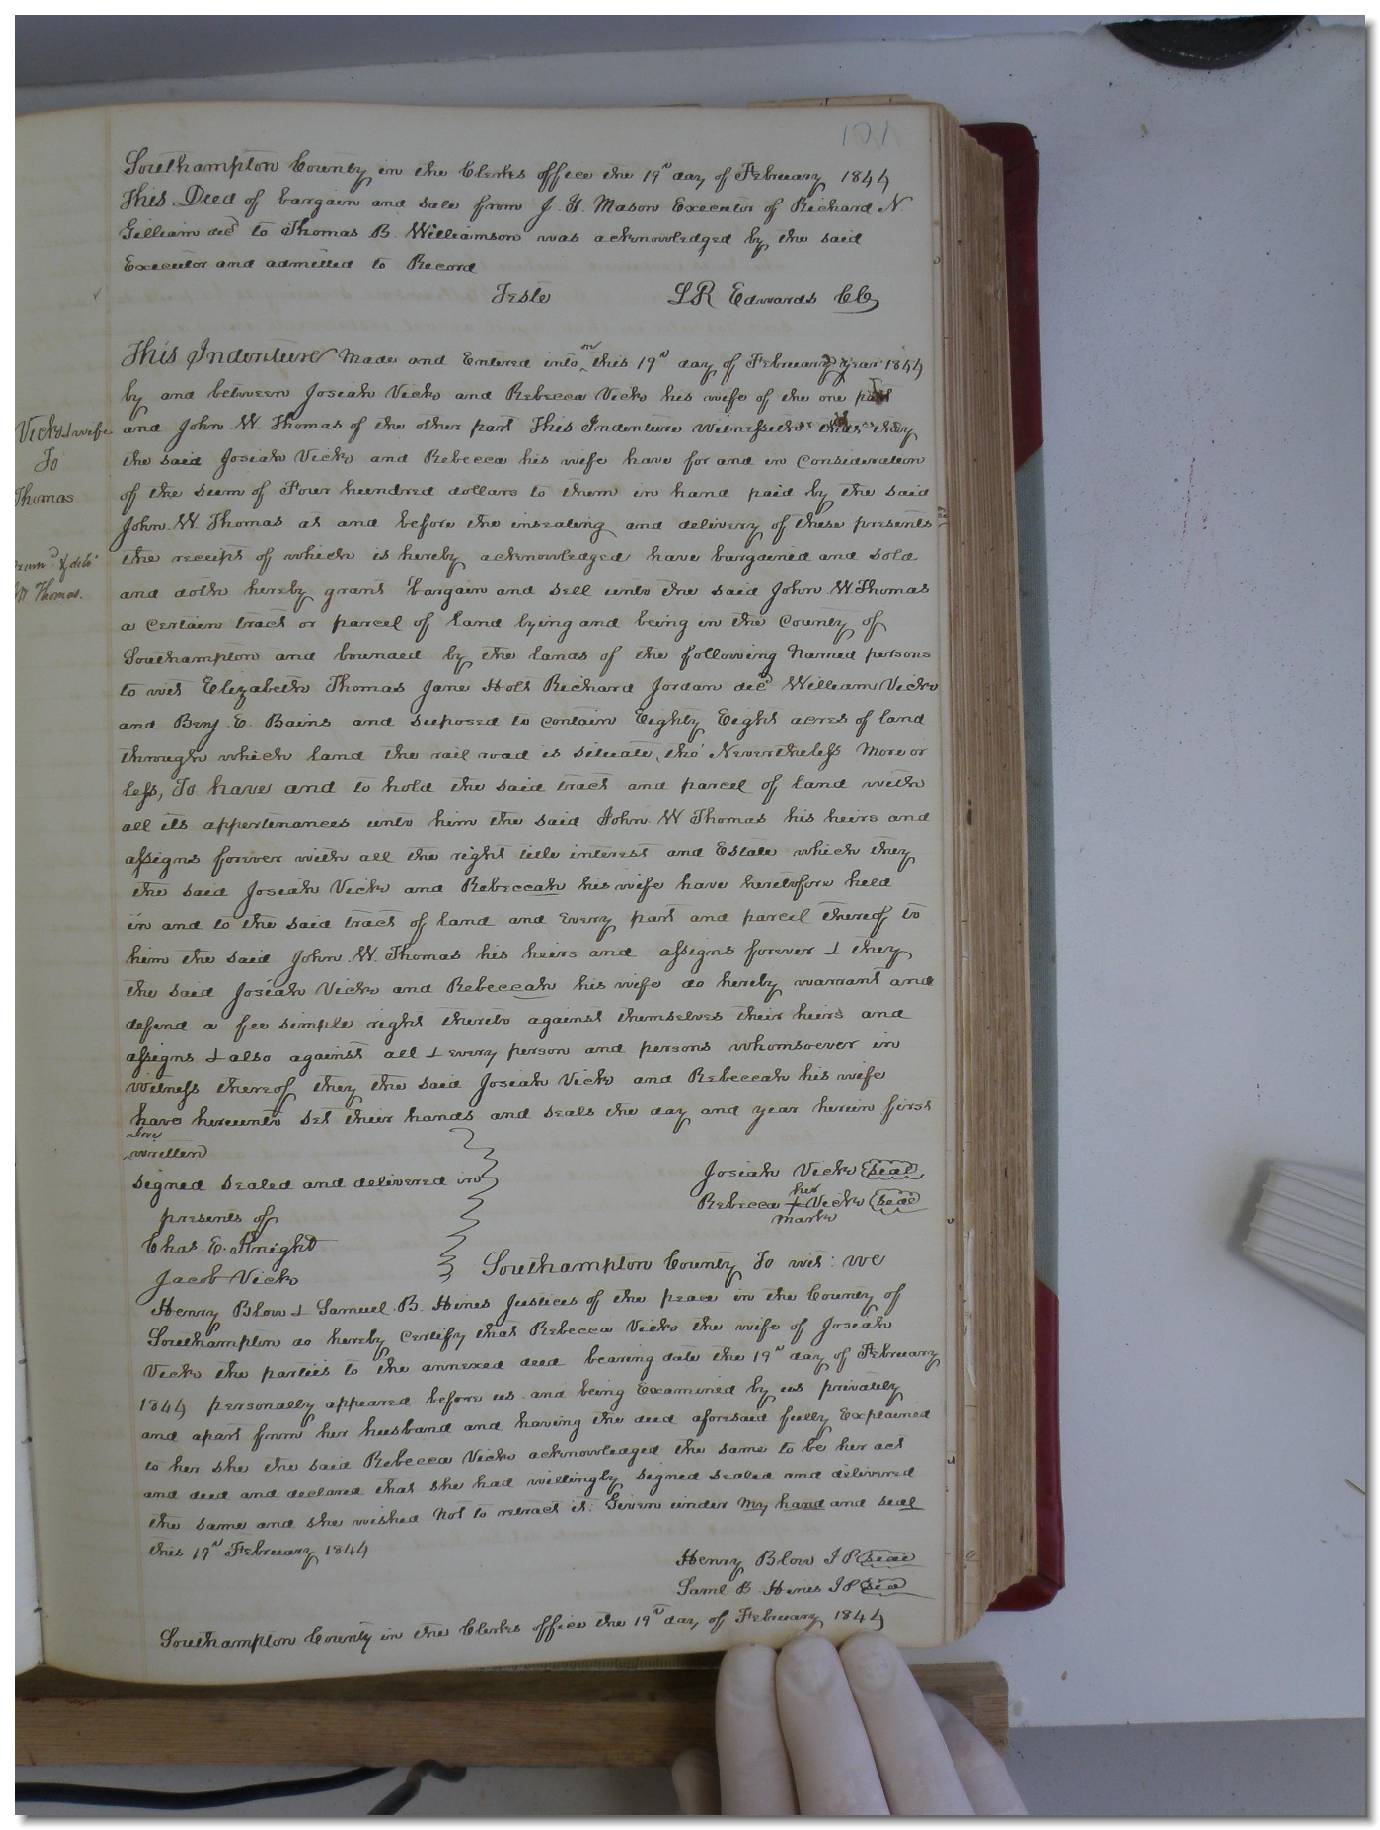 101
Southampton County in the Clerks office the 19th day of February 1844
This Deed of bargain and sale from J. Y. Mason Executor of Richard N.
Gilliam decd to Thomas B. Williamson was acknowledged by the said
Executor and admitted to Record
Teste L R Edwards CC
This Indenture Made and Entered into on this 19th day of February year 1844
by and between Josiah Vick and Rebecca Vick his wife of the one part
Vick & wife
To
Thomas
and John W. Thomas of the other part This Indenture witnesseth that they
the said Josiah Vick and Rebecca his wife have for and in consideration
of the sum of Four hundred dollars to them in hand paid by the said
John W. Thomas at and before the insealing and delivery of these presents
the receipt of which is hereby acknowledged have bargained and sold
Thomas.
and doth hereby grant bargain and sell unto the said John W. Thomas
a certain tract or parcel of land lying and being in the County of
Southampton and bounded by the lands of the following Named persons
to wit Elizabeth Thomas Jane Holt Richard Jordan decd William Vick
and Benj. E. Bains and suposed to contain Eighty Eight acres of land
through which land the rail road is situate, tho' Nevertheless More or
less, To have and to hold the said tract and parcel of land with
all its appertinances unto him the said John W Thomas his heirs and
assigns forever with all the right title interest and Estate which they
the said Josiah Vick and Rebeccah his wife have heretofore held
in and to the said tract of land and Every part and parcel thereof to
him the said John W. Thomas his heirs and assigns forever & they
the said Josiah Vick and Rebeccah his wife do hereby warrant and
defend a fee simple right thereto against themselves their heirs and
assigns & also against all & every person and persons whomsoever in
witness thereof they the said Josiah Vick and Rebeccah his wife
have hereunto set their hands and seals the day and year herein first
above
written
signed sealed and delivered in
presents of
Chas. E. Knight
Jacob Vick
Josiah Vick seal
Rebecca her + mark Vick seal
Southampton County To wit: we
Henry Blow & Samuel B. Hines Justices of the peace in the County of
Southampton do hereby certify that Rebecca Vick the wife of Josiah
Vick the parties to the annexed deed bearing date the 19th day of February
1844 personally appeared before us and being Examined by us privately
and apart from her husband and having the deed aforesaid fully Explained
to her she the said Rebecca Vick acknowledged the same to be her act
and deed and declared that she had willingly signed sealed and delivered
the same and she wished Not to retract it. Given under my hand and seal
this 19th February 1844
Henry Blow J P seal
Saml B. Hines J P seal
Southampton County in the Clerks office the 19th day of February 1844